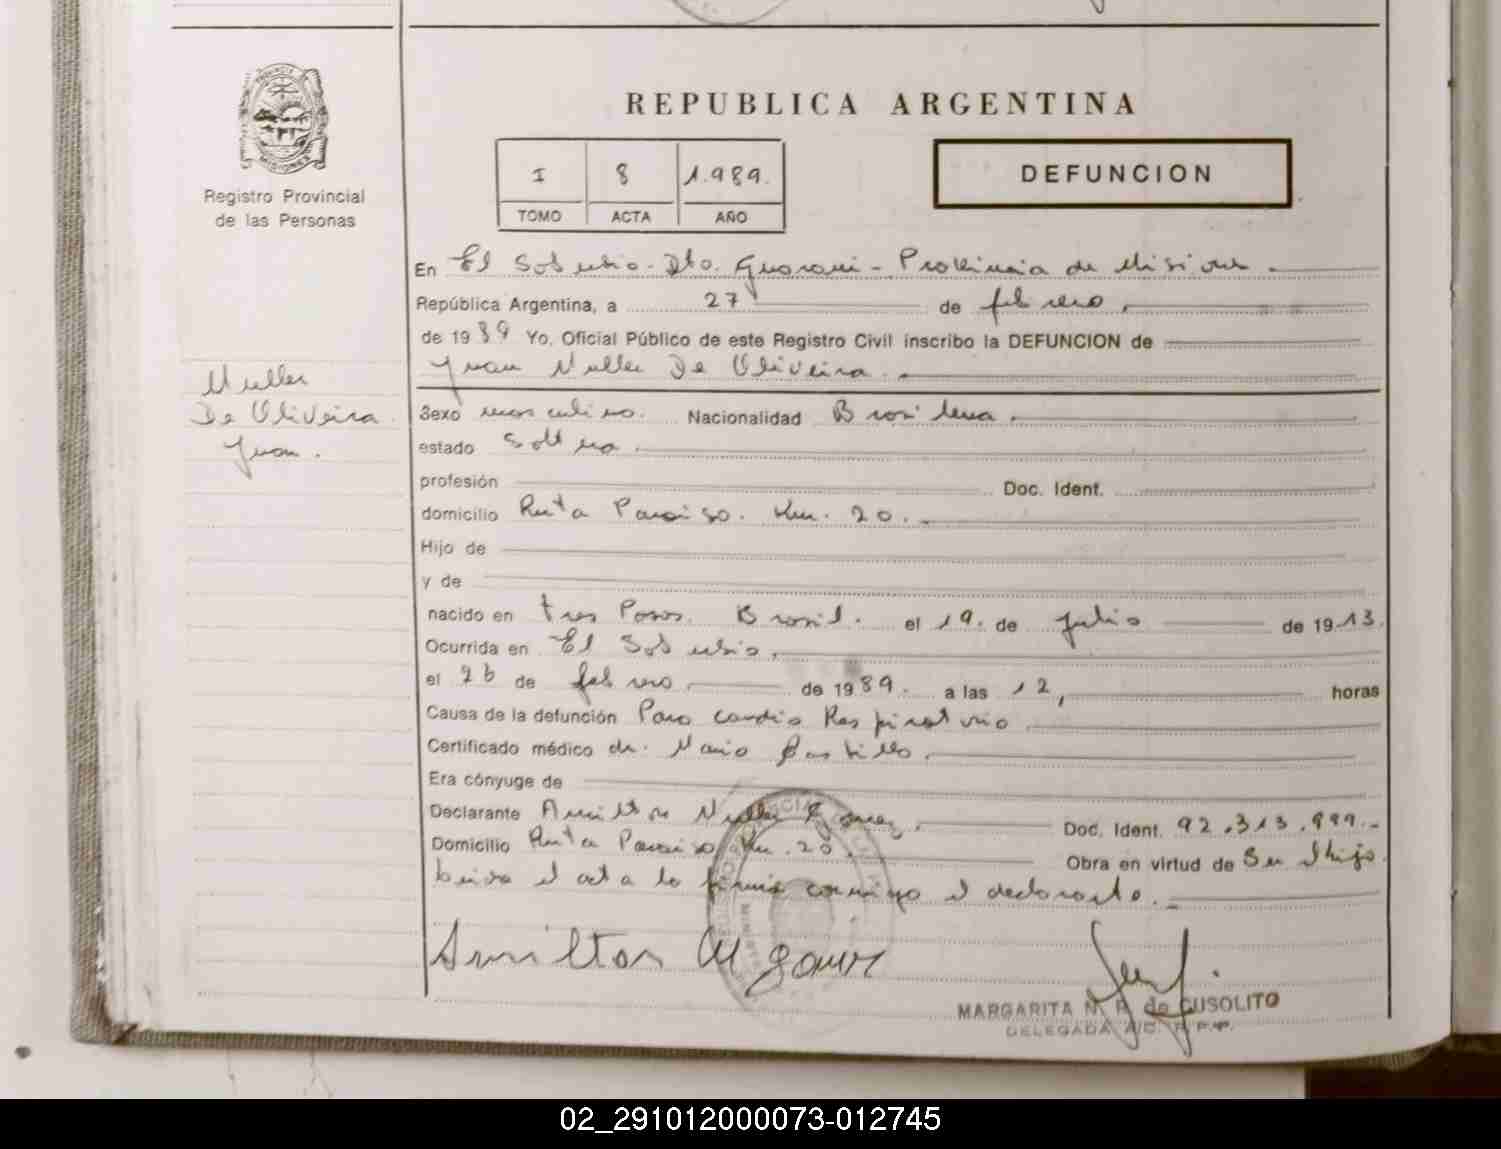 REPUBLICA ARGENTINA
PROVINCIA
MISIONES
Registro Provincial
de las Personas
I 8 1.989.
TOMO ACTA AÑO
DEFUNCION
En El Soberbio - Dto. Guarani - Provincia de Misiones
República Argentina, a 27 de febrero
de 1989 Yo, Oficial Público de este Registro Civil inscribo la DEFUNCION de
Juan Muller De Oliveira
Muller
De Oliveira
Juan.
Sexo masculino. Nacionalidad Brasilera
estado Soltero
profesión Doc. Ident.
domicilio Ruta Paraiso. Km. 20.
Hijo de
y de
nacido en Tres Pasos. Brasil. el 19. de julio de 1913.
Ocurrida en El Soberbio,
el 26 de febrero de 1989. a las 12, horas
Causa de la defunción Paro cardio Respiratorio
Certificado médico dr. Mario
Era cónyuge de
Declarante Amilton Muller Doc. Ident. 92.313.999.-
Domicilio Ruta Paraiso Km. 20. Obra en virtud de Su hijo.
el acta la firma conmigo el declarante.
Amilton M
MARGARITA N. R. de CUSOLITO
DELEGADA
02_291012000073-012745